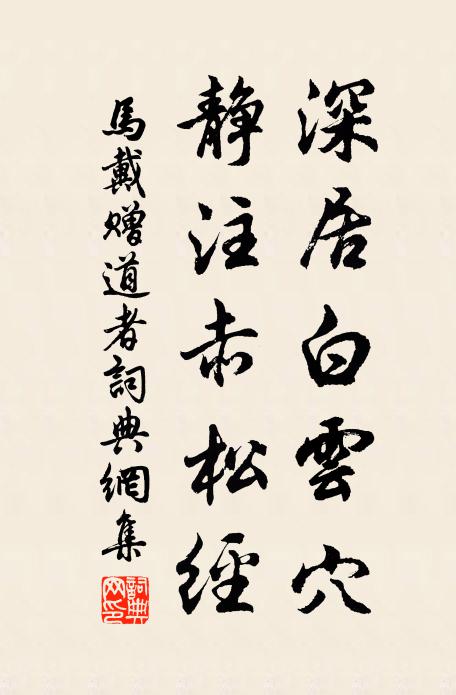 深居白雲穴
靜注赤松經
馬戴贈道者詞典網集
詞典网印